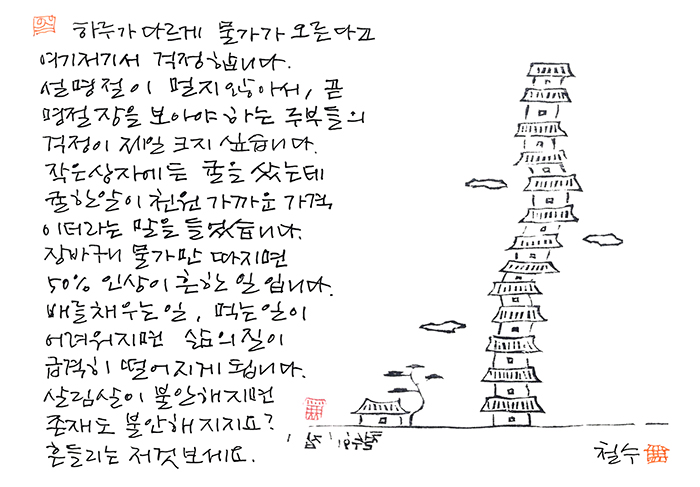 하루가 다르게 물가가 오른다고
여기저기서 걱정합니다.
설명절이 멀지않아서, 곧
명절장을 보아야 하는 주부들의
걱정이 제일 크지 싶습니다.
작은상자에든 귤을 샀는데
귤한알이 천원 가까운 가격
이더라는 말을 들었습니다.
장바구니 물가만 따지면
50% 인상이 흔한 일입니다.
배를채우는일, 먹는일이
어려워지면 삶의질이
급격히 떨어지게 됩니다.
살림살이 불안해지면
존재도 불안해지지요?
흔들리는 저것보세요.
철수